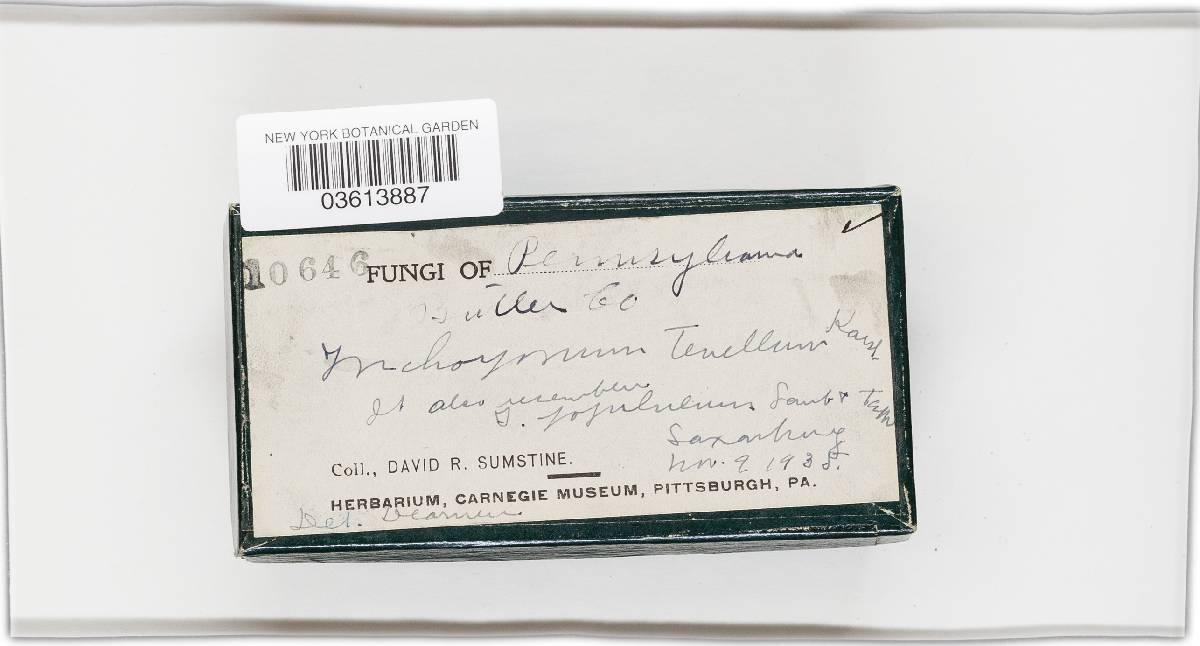 NEW YORK BOTANICAL GARDEN
03613887
10646 FUNGI OF Pennsylvania
Butler Co
Tenellum Karst.
It also resembles
T. Saut &
Saxonburg
Coll., DAVID R. SUMSTINE.
Nov. 9 1935.
HERBARIUM, CARNEGIE MUSEUM, PITTSBURGH, PA.
Det. Dearness